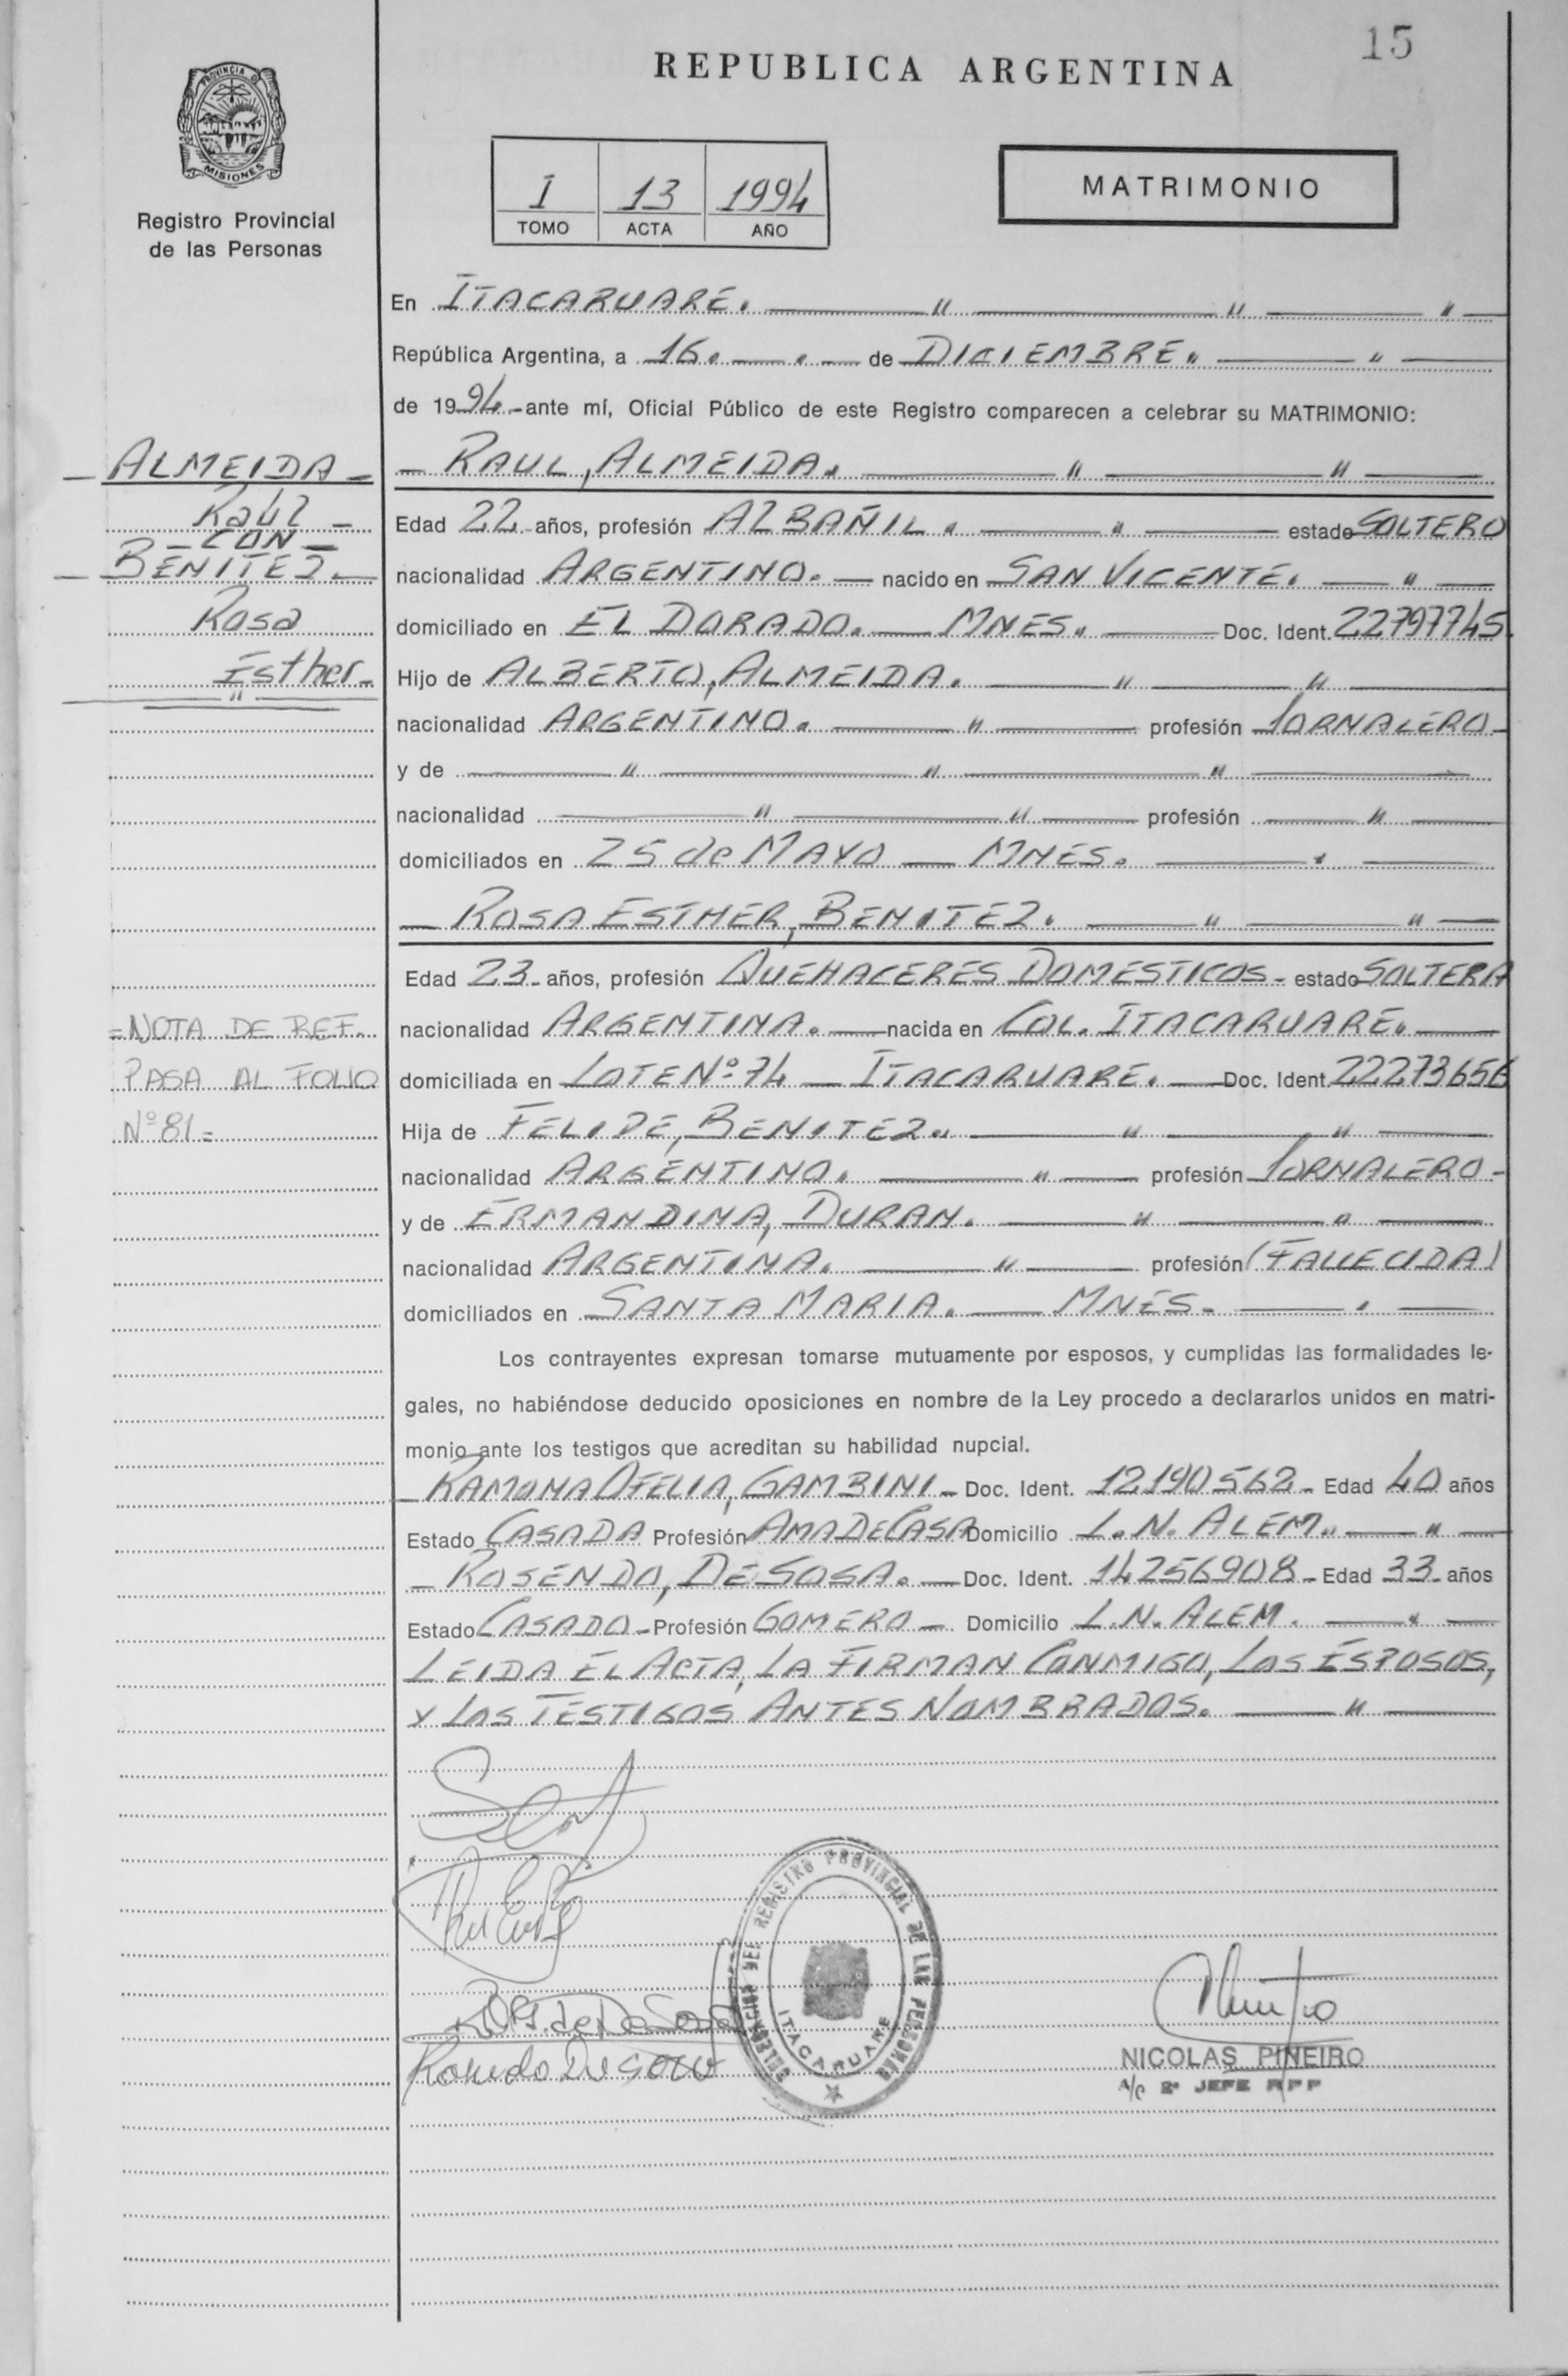 15
REPUBLICA ARGENTINA
PROVINCIA DE
MISIONES
Registro Provincial
de las Personas
I 13 1994
TOMO ACTA AÑO
MATRIMONIO
En ITACARUARE. — " — " — " —
República Argentina, a 16. — . — de DICIEMBRE. — " —
de 1994 - ante mí, Oficial Público de este Registro comparecen a celebrar su MATRIMONIO:
— ALMEIDA —
Raúl —
— CON —
— BENITEZ. —
Rosa
Esther —
— " —
— RAUL, ALMEIDA. — " — " —
Edad 22 - años, profesión ALBAÑIL. — " — estado SOLTERO
nacionalidad ARGENTINO. — nacido en SAN VICENTE. — " —
domiciliado en EL DORADO. — MNES. — Doc. Ident. 22797745.
Hijo de ALBERTO, ALMEIDA. — " — " —
nacionalidad ARGENTINO. — " — profesión JORNALERO -
y de — " — " — " —
nacionalidad — " — " — profesión — " —
domiciliados en 25 de MAYO — MNES. — . —
— ROSA ESTHER, BENITEZ. — " — " —
Edad 23 - años, profesión QUEHACERES DOMESTICOS - estado SOLTERA
nacionalidad ARGENTINA. — nacida en COL. ITACARUARE. —
domiciliada en LOTE Nº 74 — ITACARUARE. — Doc. Ident. 22273656
Hija de FELIDE, BENITEZ. — " — " —
nacionalidad ARGENTINO. — " — profesión JORNALERO -
y de ERMANDINA, DURAN. — " — " —
nacionalidad ARGENTINA. — " — profesión (FALLECIDA)
domiciliados en SANTA MARIA. — MNES. — . —
= NOTA DE REF.
PASA AL FOLIO
Nº 81 =
Los contrayentes expresan tomarse mutuamente por esposos, y cumplidas las formalidades le-
gales, no habiéndose deducido oposiciones en nombre de la Ley procedo a declararlos unidos en matri-
monio ante los testigos que acreditan su habilidad nupcial.
— RAMONA OFELIA, GAMBINI - Doc. Ident. 12190562 - Edad 40 años
Estado CASADA Profesión AMA DE CASA Domicilio L. N. ALEM. — " —
— ROSENDO, DE SOSA. — Doc. Ident. 14256908 - Edad 33 - años
Estado CASADO - Profesión GOMERO — Domicilio L.N. ALEM. — " —
LEIDA EL ACTA, LA FIRMAN CONMIGO, LOS ESPOSOS,
Y LOS TESTIGOS ANTES NOMBRADOS. — " —
DELEGACION DEL REGISTRO PROVINCIAL DE LAS PERSONAS
ITACARUARE
NICOLAS PINEIRO
A/C 2º JEFE RPP